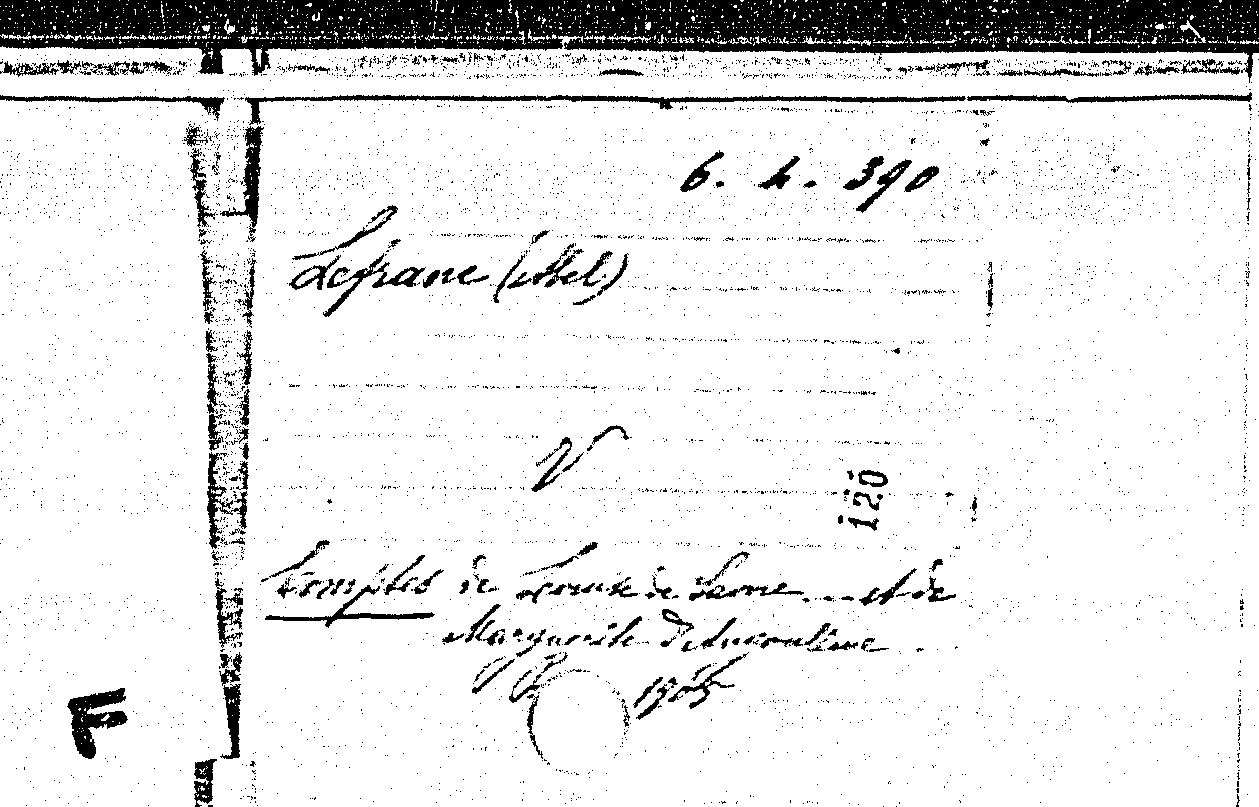 6. 4. 390
Lefranc (Abel)
V
120
Comptes de Louise de Savoie .... et de
Marguerite d'Angoulême ..
P 1905
F